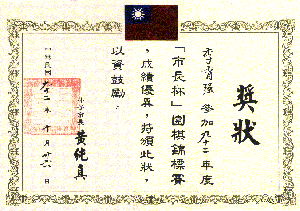 獎狀
參加九十二年度
「市長杯」圍棋錦標賽
,成績優異,特頒此狀,
以資鼓勵。
黃純真
中華民國九十二年十月廿六日